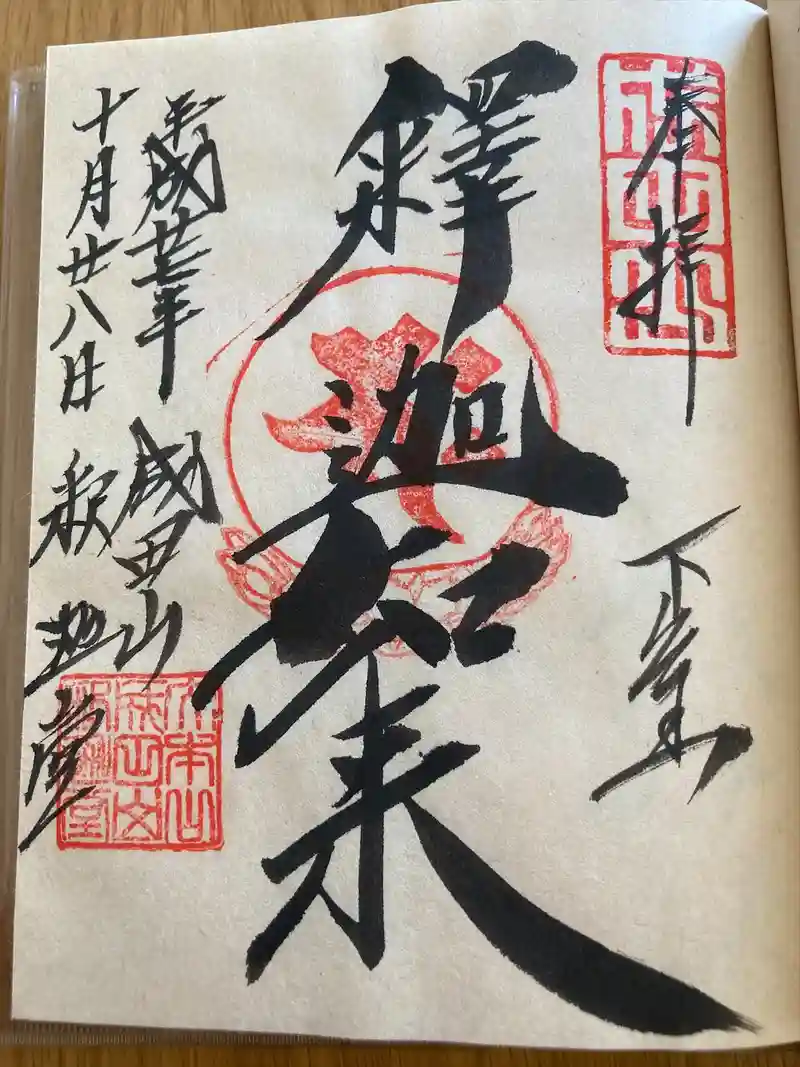 奉拝
成田山
下
釋迦如来
平成廿七年
成田山
十月廿八日
釈迦堂
大本山
成田山
釈迦堂